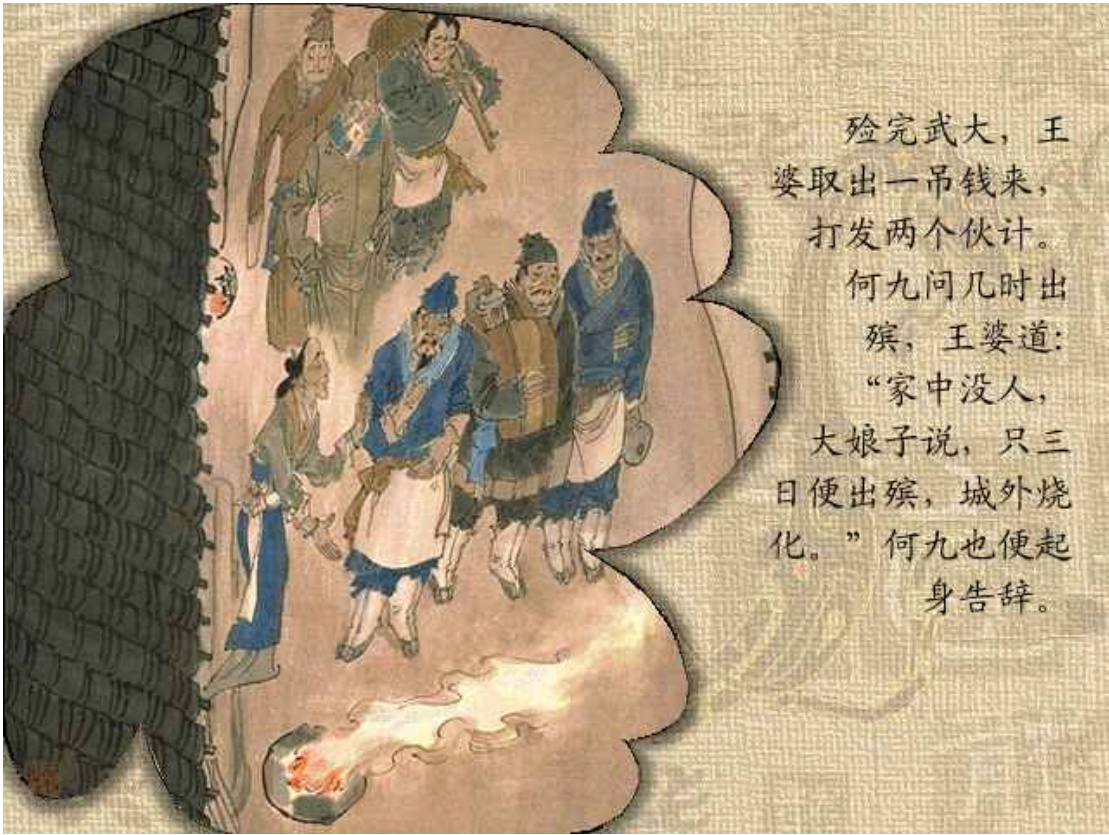 殓完武大，王
婆取出一吊钱来，
打发两个伙计。
何九问几时出
殡，王婆道：
“家中没人，
大娘子说，只三
日便出殡，城外烧
化。”何九也便起
身告辞。